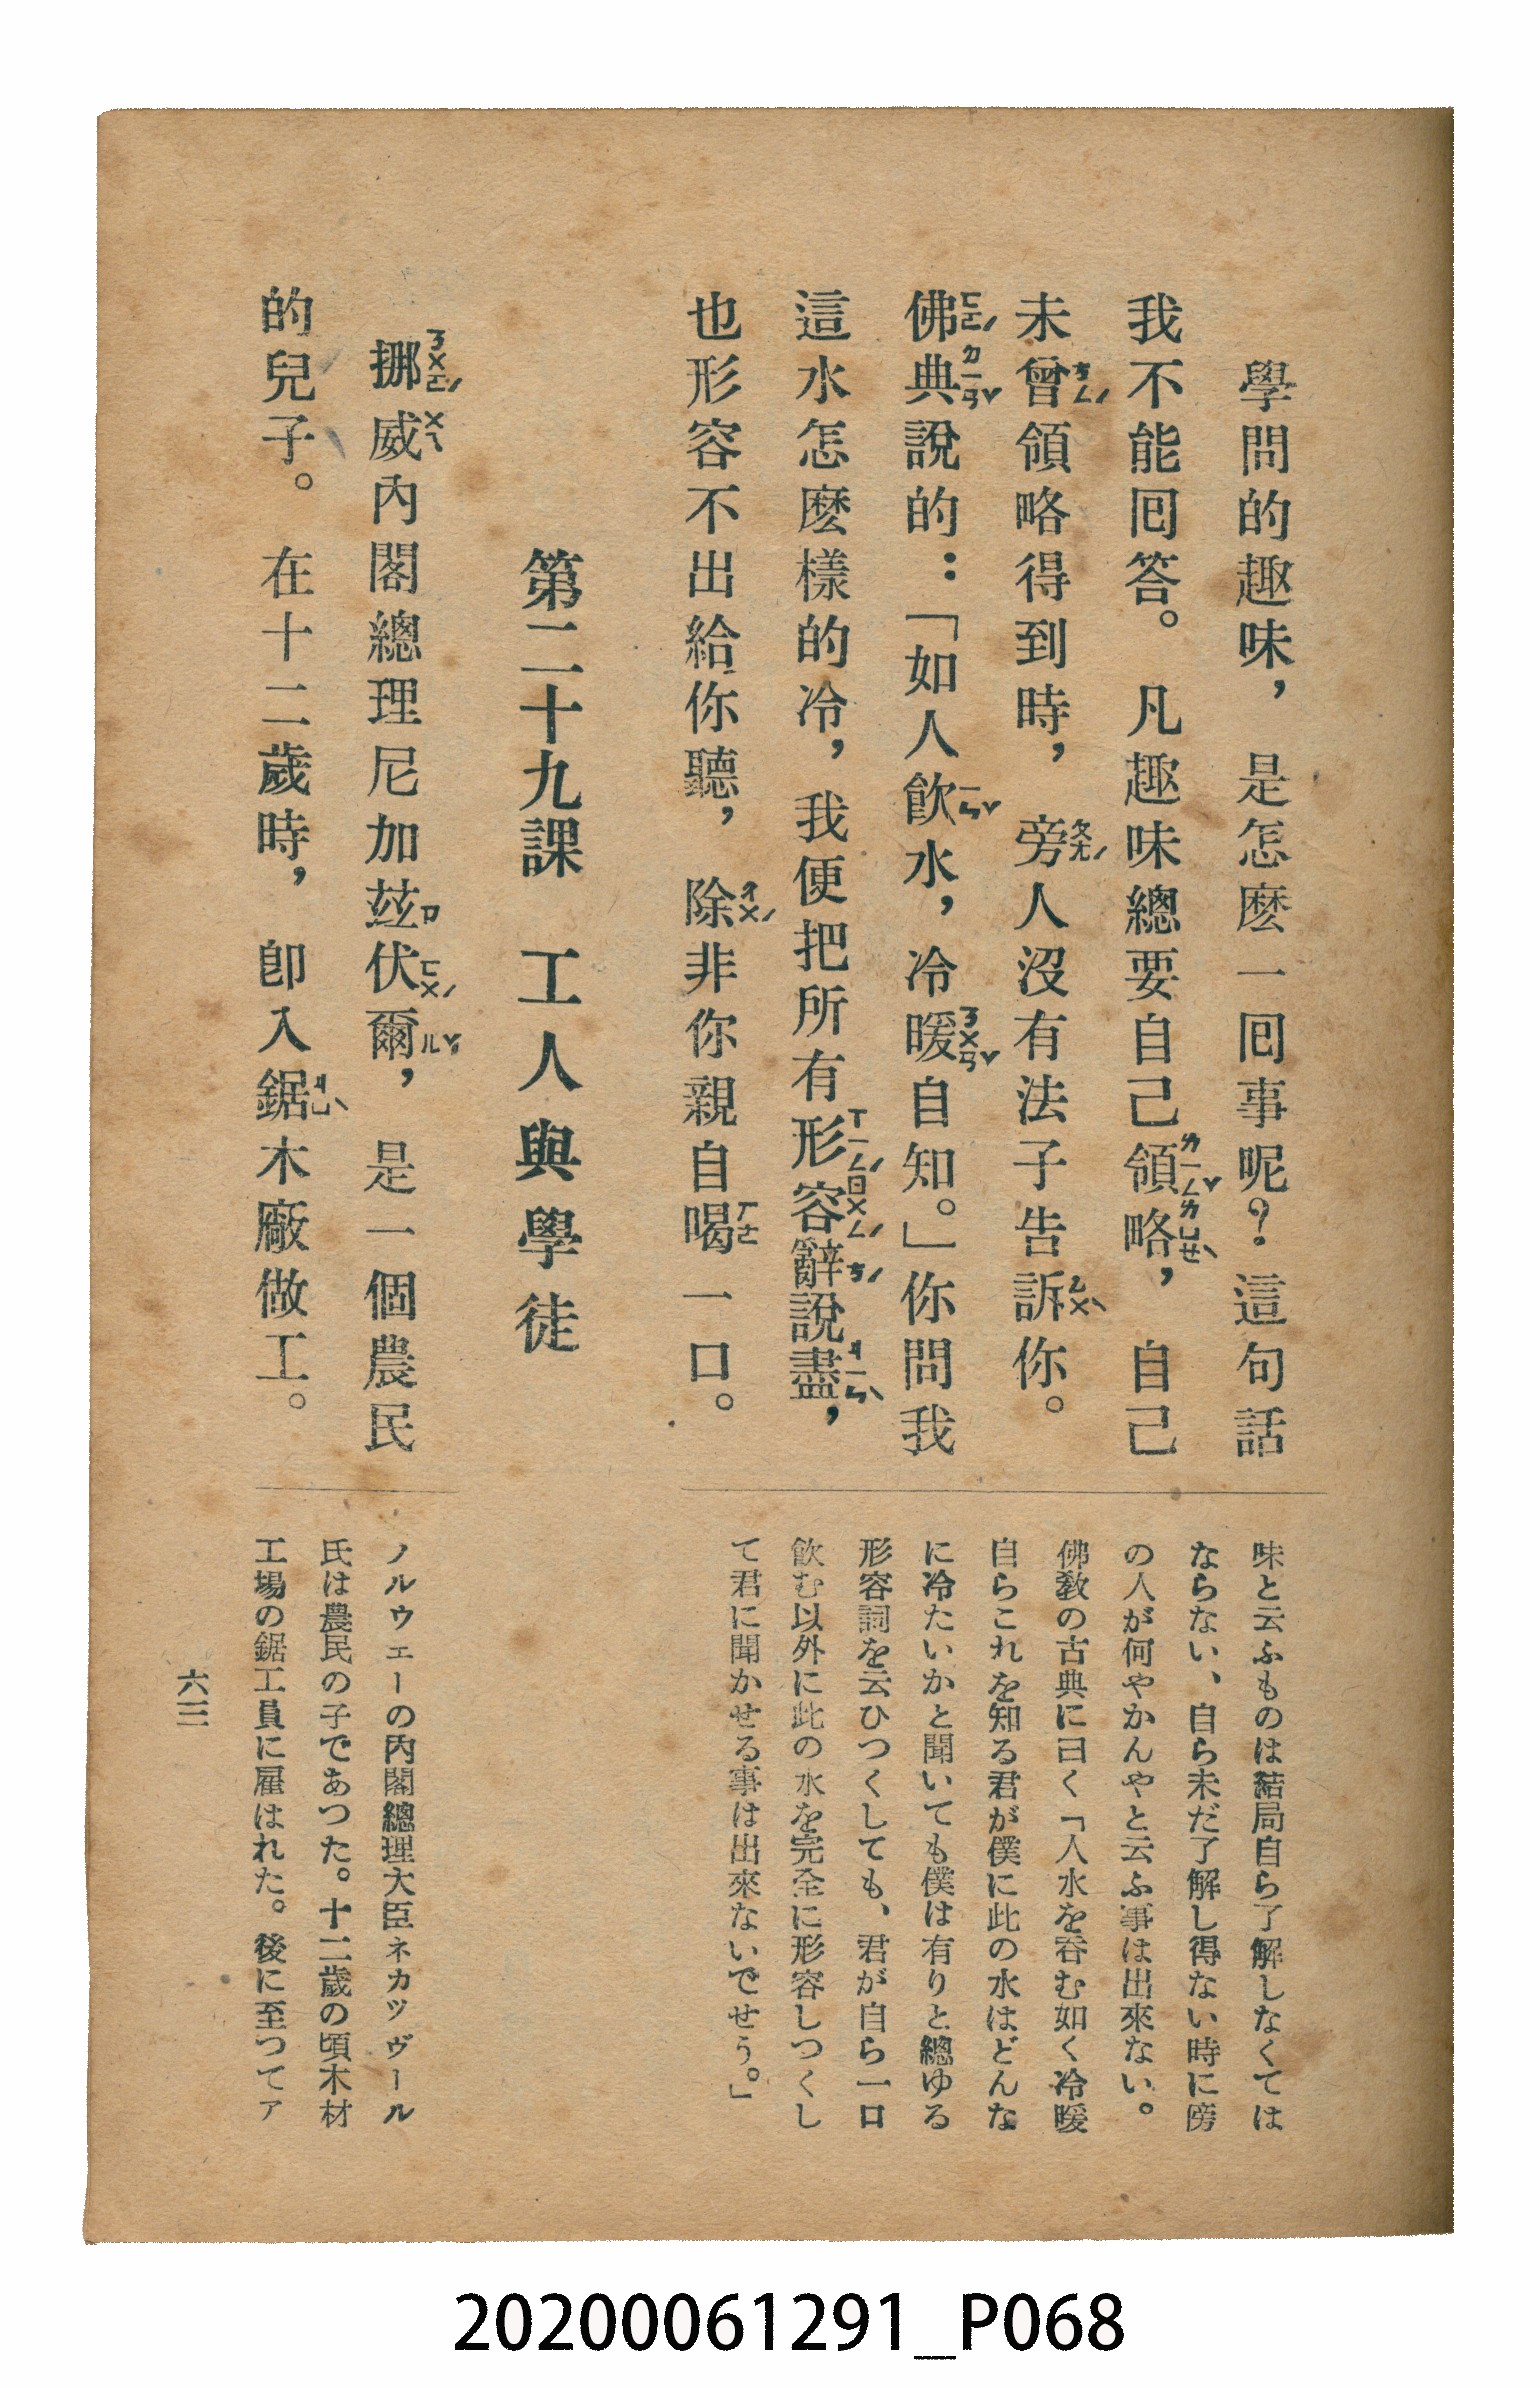 學問的趣味，是怎麽一囘事呢？這句話
我不能囘答。凡趣味總要自己領略，自己
未曾領略得到時，旁人沒有法子告訴你。
佛典說的：「如人飮水，冷暖自知。」你問我
這水怎麽樣的冷，我便把所有形容辭說盡，
也形容不出給你聽，除非你親自喝一口。
第二十九課　工人與學徒
挪威內閣總理尼加玆伏爾，是一個農民
的兒子。在十二歲時，卽入鋸木廠做工。
味と云ふものは結局自ら了解しなくては
ならない、自ら未だ了解し得ない時に傍
の人が何やかんやと云ふ事は出來ない。
佛敎の古典に曰く「人水を呑む如く冷暖
自らこれを知る君が僕に此の水はどんな
に冷たいかと聞いても僕は有りと總ゆる
形容詞を云ひつくしても、君が自ら一口
飮む以外に此の水を完全に形容しつくし
て君に聞かせる事は出來ないでせう。」
ノルウェーの內閣總理大臣ネカツヴール
氏は農民の子であつた。十二歲の頃木材
工場の鋸工員に雇はれた。後に至つてァ
六三
20200061291_P068